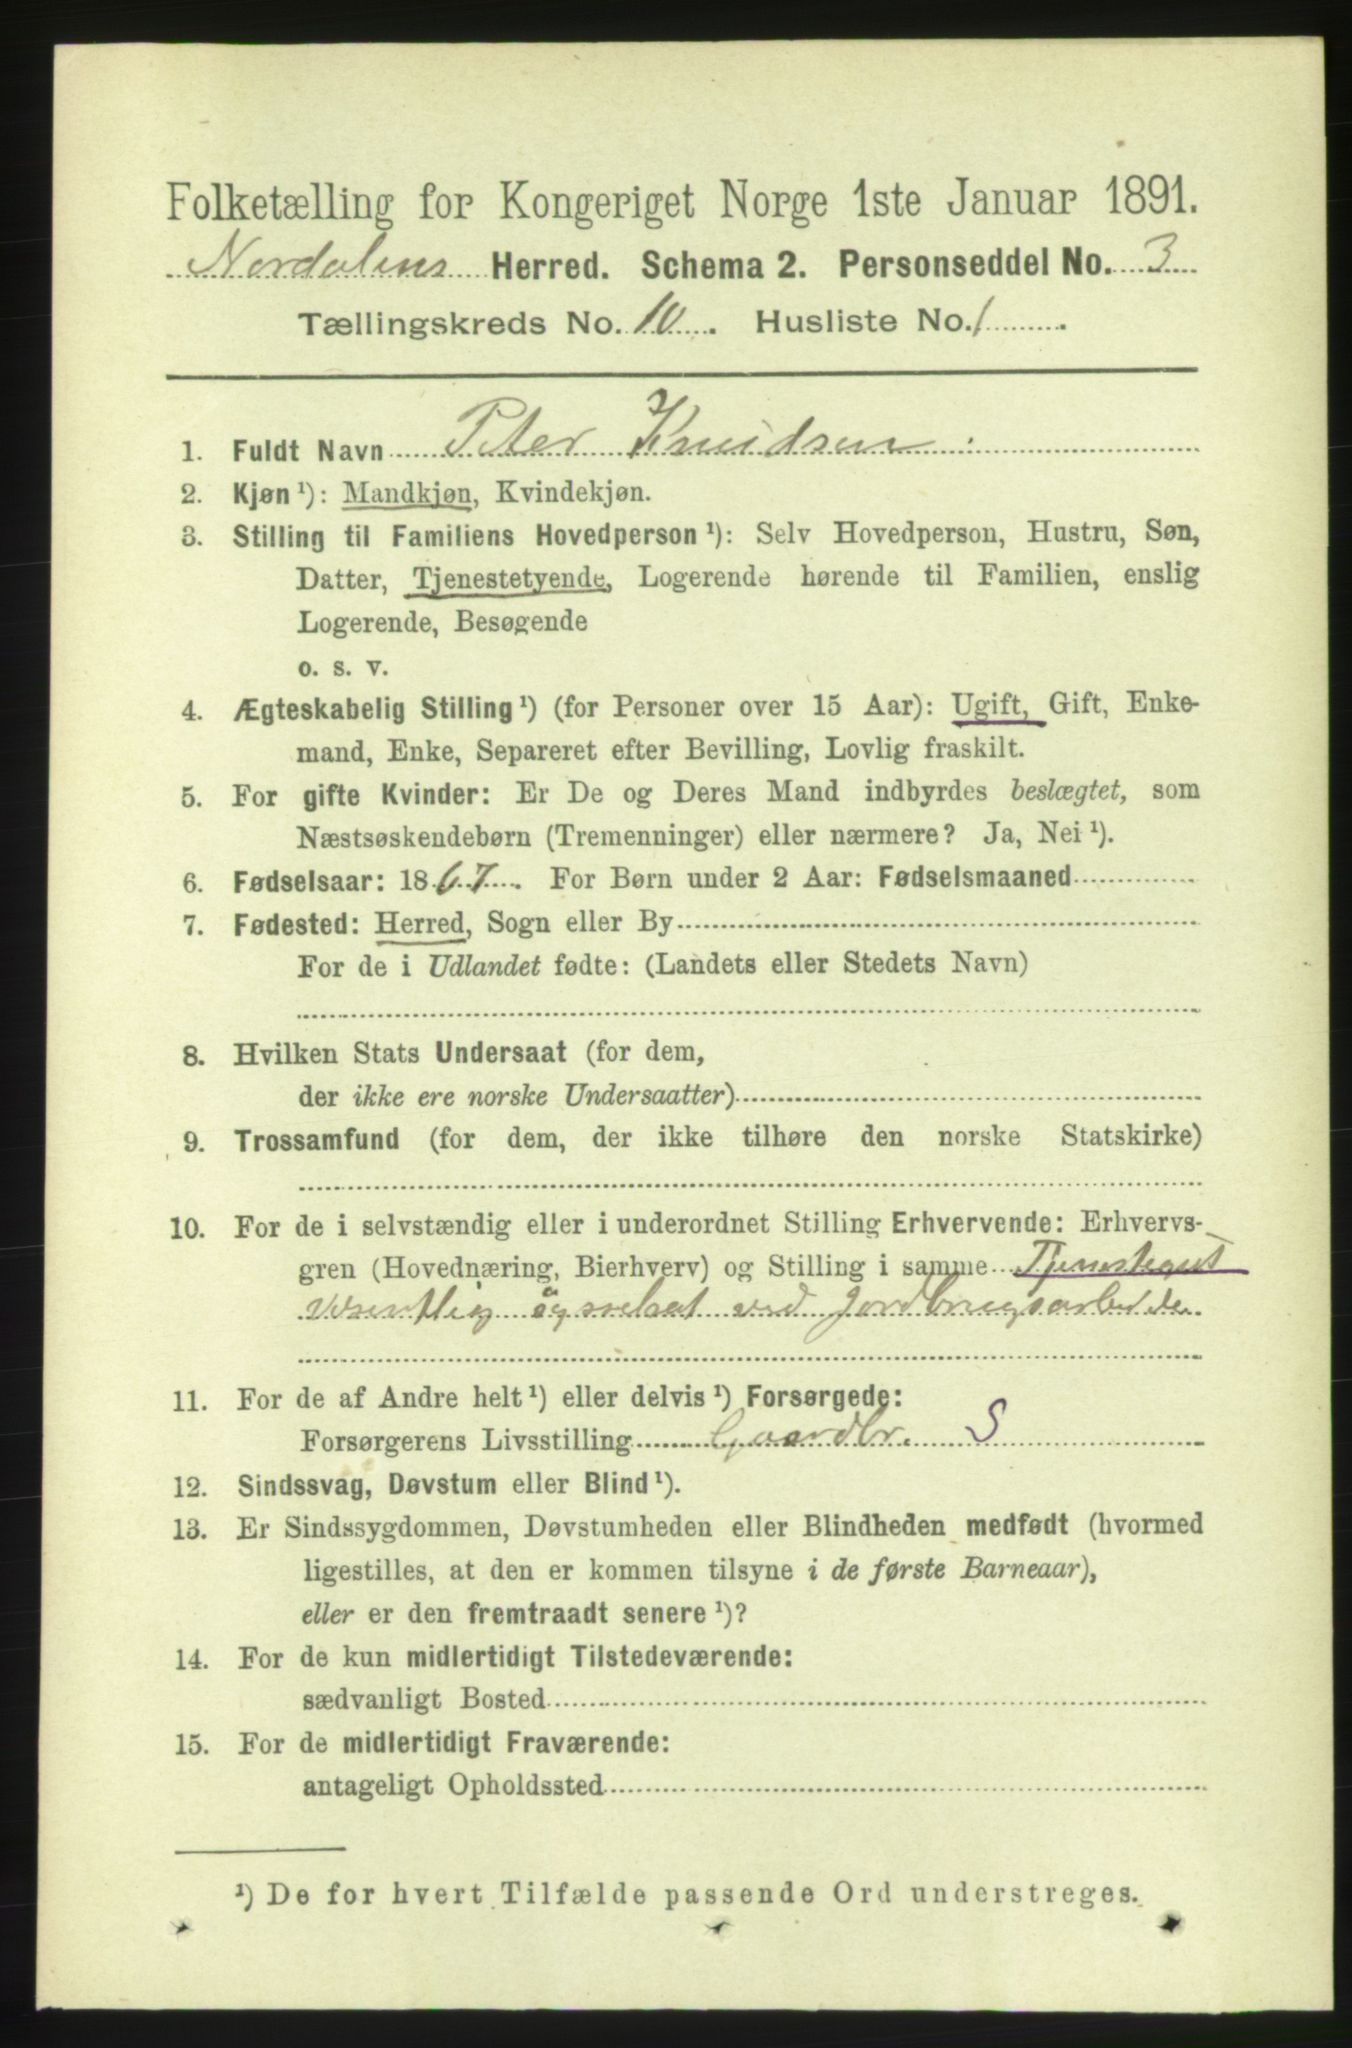 Folketælling for Kongeriget Norge 1ste Januar 1891.
Nordalens Herred. Schema 2. Personseddel No. 3
Tællingskreds No. 10. Husliste No. 1.
1. Fuldt Navn Peter Knudsen
2. Kjøn ¹): Mandkjøn, Kvindekjøn.
3. Stilling til Familiens Hovedperson ¹): Selv Hovedperson, Hustru, Søn,
Datter, Tjenestetyende, Logerende hørende til Familien, enslig
Logerende, Besøgende
o. s. v.
4. Ægteskabelig Stilling ¹) (for Personer over 15 Aar): Ugift, Gift, Enke-
mand, Enke, Separeret efter Bevilling, Lovlig fraskilt.
5. For gifte Kvinder: Er De og Deres Mand indbyrdes beslægtet, som
Næstsøskendebørn (Tremenninger) eller nærmere? Ja, Nei ¹).
6. Fødselsaar: 1867. For Børn under 2 Aar: Fødselsmaaned
7. Fødested: Herred, Sogn eller By
For de i Udlandet fødte: (Landets eller Stedets Navn)
8. Hvilken Stats Undersaat (for dem,
der ikke ere norske Undersaatter)
9. Trossamfund (for dem, der ikke tilhøre den norske Statskirke)
10. For de i selvstændig eller i underordnet Stilling Erhvervende: Erhvervs-
gren (Hovednæring, Bierhverv) og Stilling i samme Tjenestegut
væsentlig sysselsat ved Jordbrugsarbeide
11. For de af Andre helt ¹) eller delvis ¹) Forsørgede:
Forsørgerens Livsstilling Gaardbr. S
12. Sindssvag, Døvstum eller Blind ¹).
13. Er Sindssygdommen, Døvstumheden eller Blindheden medfødt (hvormed
ligestilles, at den er kommen tilsyne i de første Barneaar),
eller er den fremtraadt senere ¹)?
14. For de kun midlertidigt Tilstedeværende:
sædvanligt Bosted
15. For de midlertidigt Fraværende:
antageligt Opholdssted
¹) De for hvert Tilfælde passende Ord understreges.